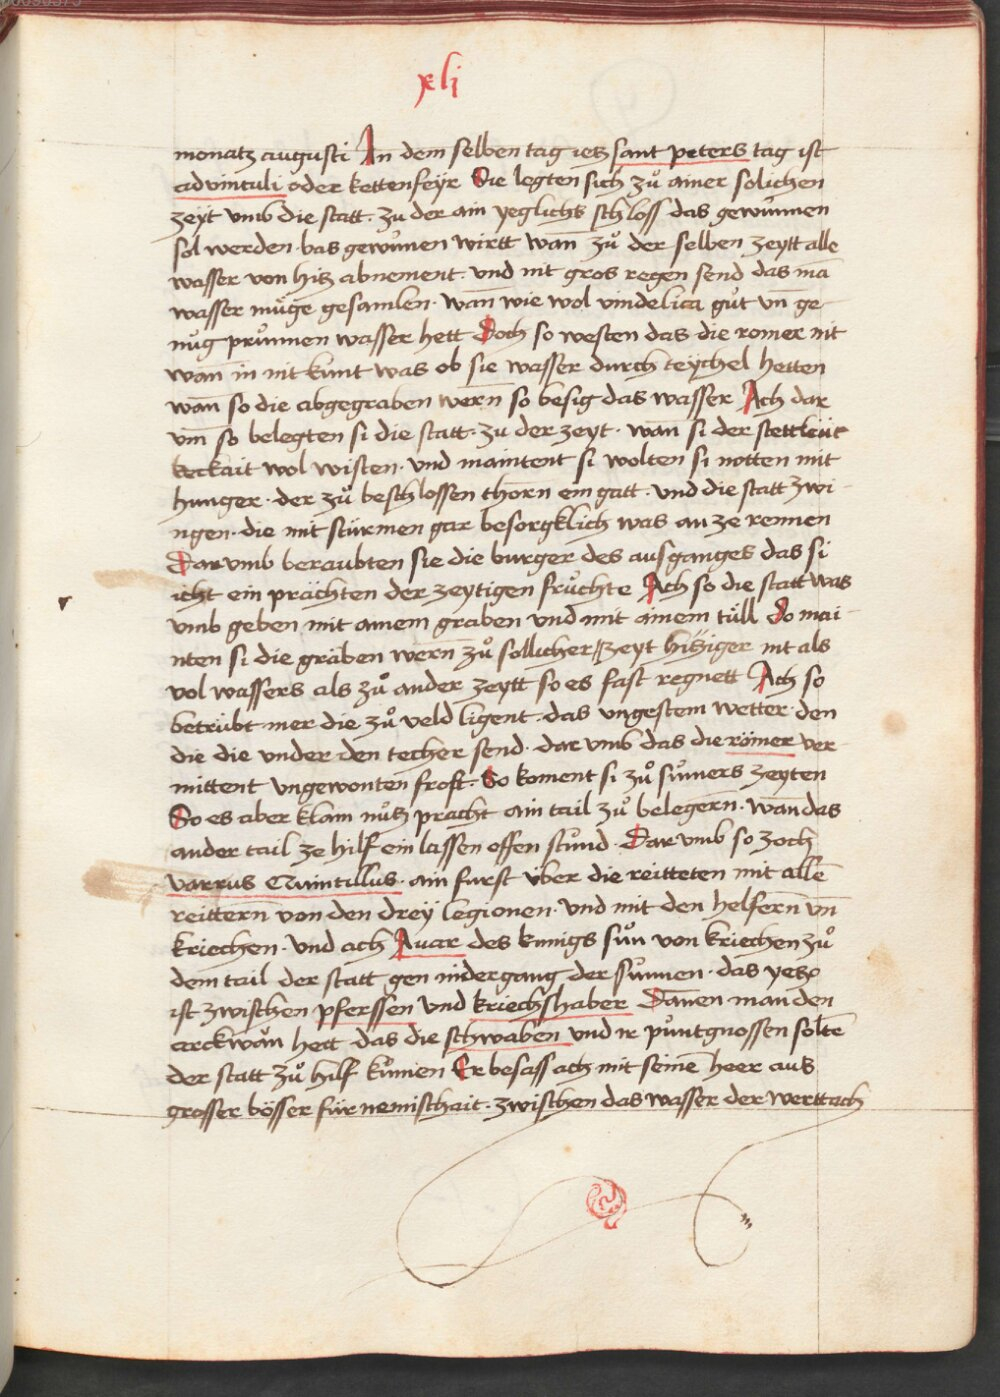 xlj
monatz augusti An dem selben tag iez sant peters tag ist
advinculi oder kettenfeyr Sie legten sich zů ainer solichen
zeyt vmb die statt · zu der ain yeglichs schloss das gewunnen
sol werden · bas gewunen wirtt wan̄ zů der selben zeytt alle
wasser von hitz abnement · vnd nit gros regen send das mā
wasser mu̇ge gesamlen · wan̄ wie wol vindelica gůt vn̄ ge-
nůg prunnen wasser hett Doch so westen das die romer nit
wan̄ in nit kunt was ob sie wasser durch teychel hetten
wan̄ so die abgegraben wern̄ so besig das wasser Ach dar
vm̄ so belegten si die statt · zu der zeyt · wan̄ si der stettleüt
keckait wol wisten · vnd maintent si wolten si notten mit
hunger · der zů beschlossen thorn ein gatt · vnd die statt zwi-
ngen · die mit stürmen gar besorgklich was an ze rennen
Dar vmb beraubten sie die burger des ausganges das si
icht ein prächten der zeytigen fruchte Ach so die statt was
vmb geben mit ainem graben vnd mit ainem tüll do mai-
nten si die gräben wern̄ zů sollicher zeyt hitziger nit als
vol wassers als zů ander zeytt so es fast regnett Ach so
betrübt mer die zů veld ligent · das vngestem wetter · den
die die vnder den techer send · dar vmb das die römer ver-
mittent vngewonten frost · So koment si zů sum̄ers zeyten
So es aber klain nůtz pracht ain tail zů belegern̄ · wan̄ das
ander tail ze hilf ein lassen offen stund · Dar vmb so zoch
varrus Quintillus · ain furst über die reitteten mit allē
reittern̄ von den dreÿ legionen · vnd mit den helfern̄ vn̄
kriechen · vnd ach Auar des kunigs sun̄ von kriechen zů
dem tail der statt gen nidergang der sunnen · das yetz
ist zwischen pferssen vnd kriechshaber Dan̄en man den
arckwan̄ hett das die schwaben vnd ir puntgnossen soltē
der statt zů hilf kumen Er besass ach mit seinē heer aus
grosser bösser für nemischait · zwischen das wasser der werttach